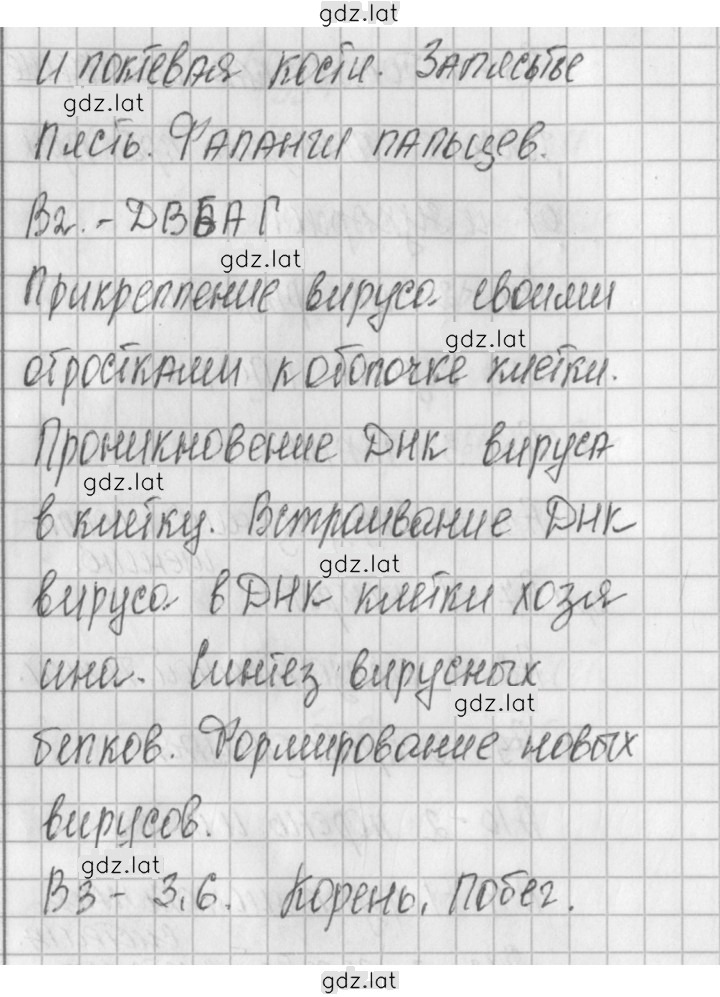 gdz.lat
и локтевая кости. Запястье
gdz.lat
Пясть. Фаланги пальцев.
В2. - ДВБАГ
gdz.lat
Прикрепление вируса своими
gdz.lat
отростками к оболочке клетки.
Проникновение ДНК вируса
gdz.lat
в клетку. Встраивание ДНК
gdz.lat
вируса в ДНК клетки хозя
ина. Синтез вирусных
gdz.lat
белков. Формирование новых
вирусов.
gdz.lat
В3 - 3,6. Корень, Побег.
gdz.lat